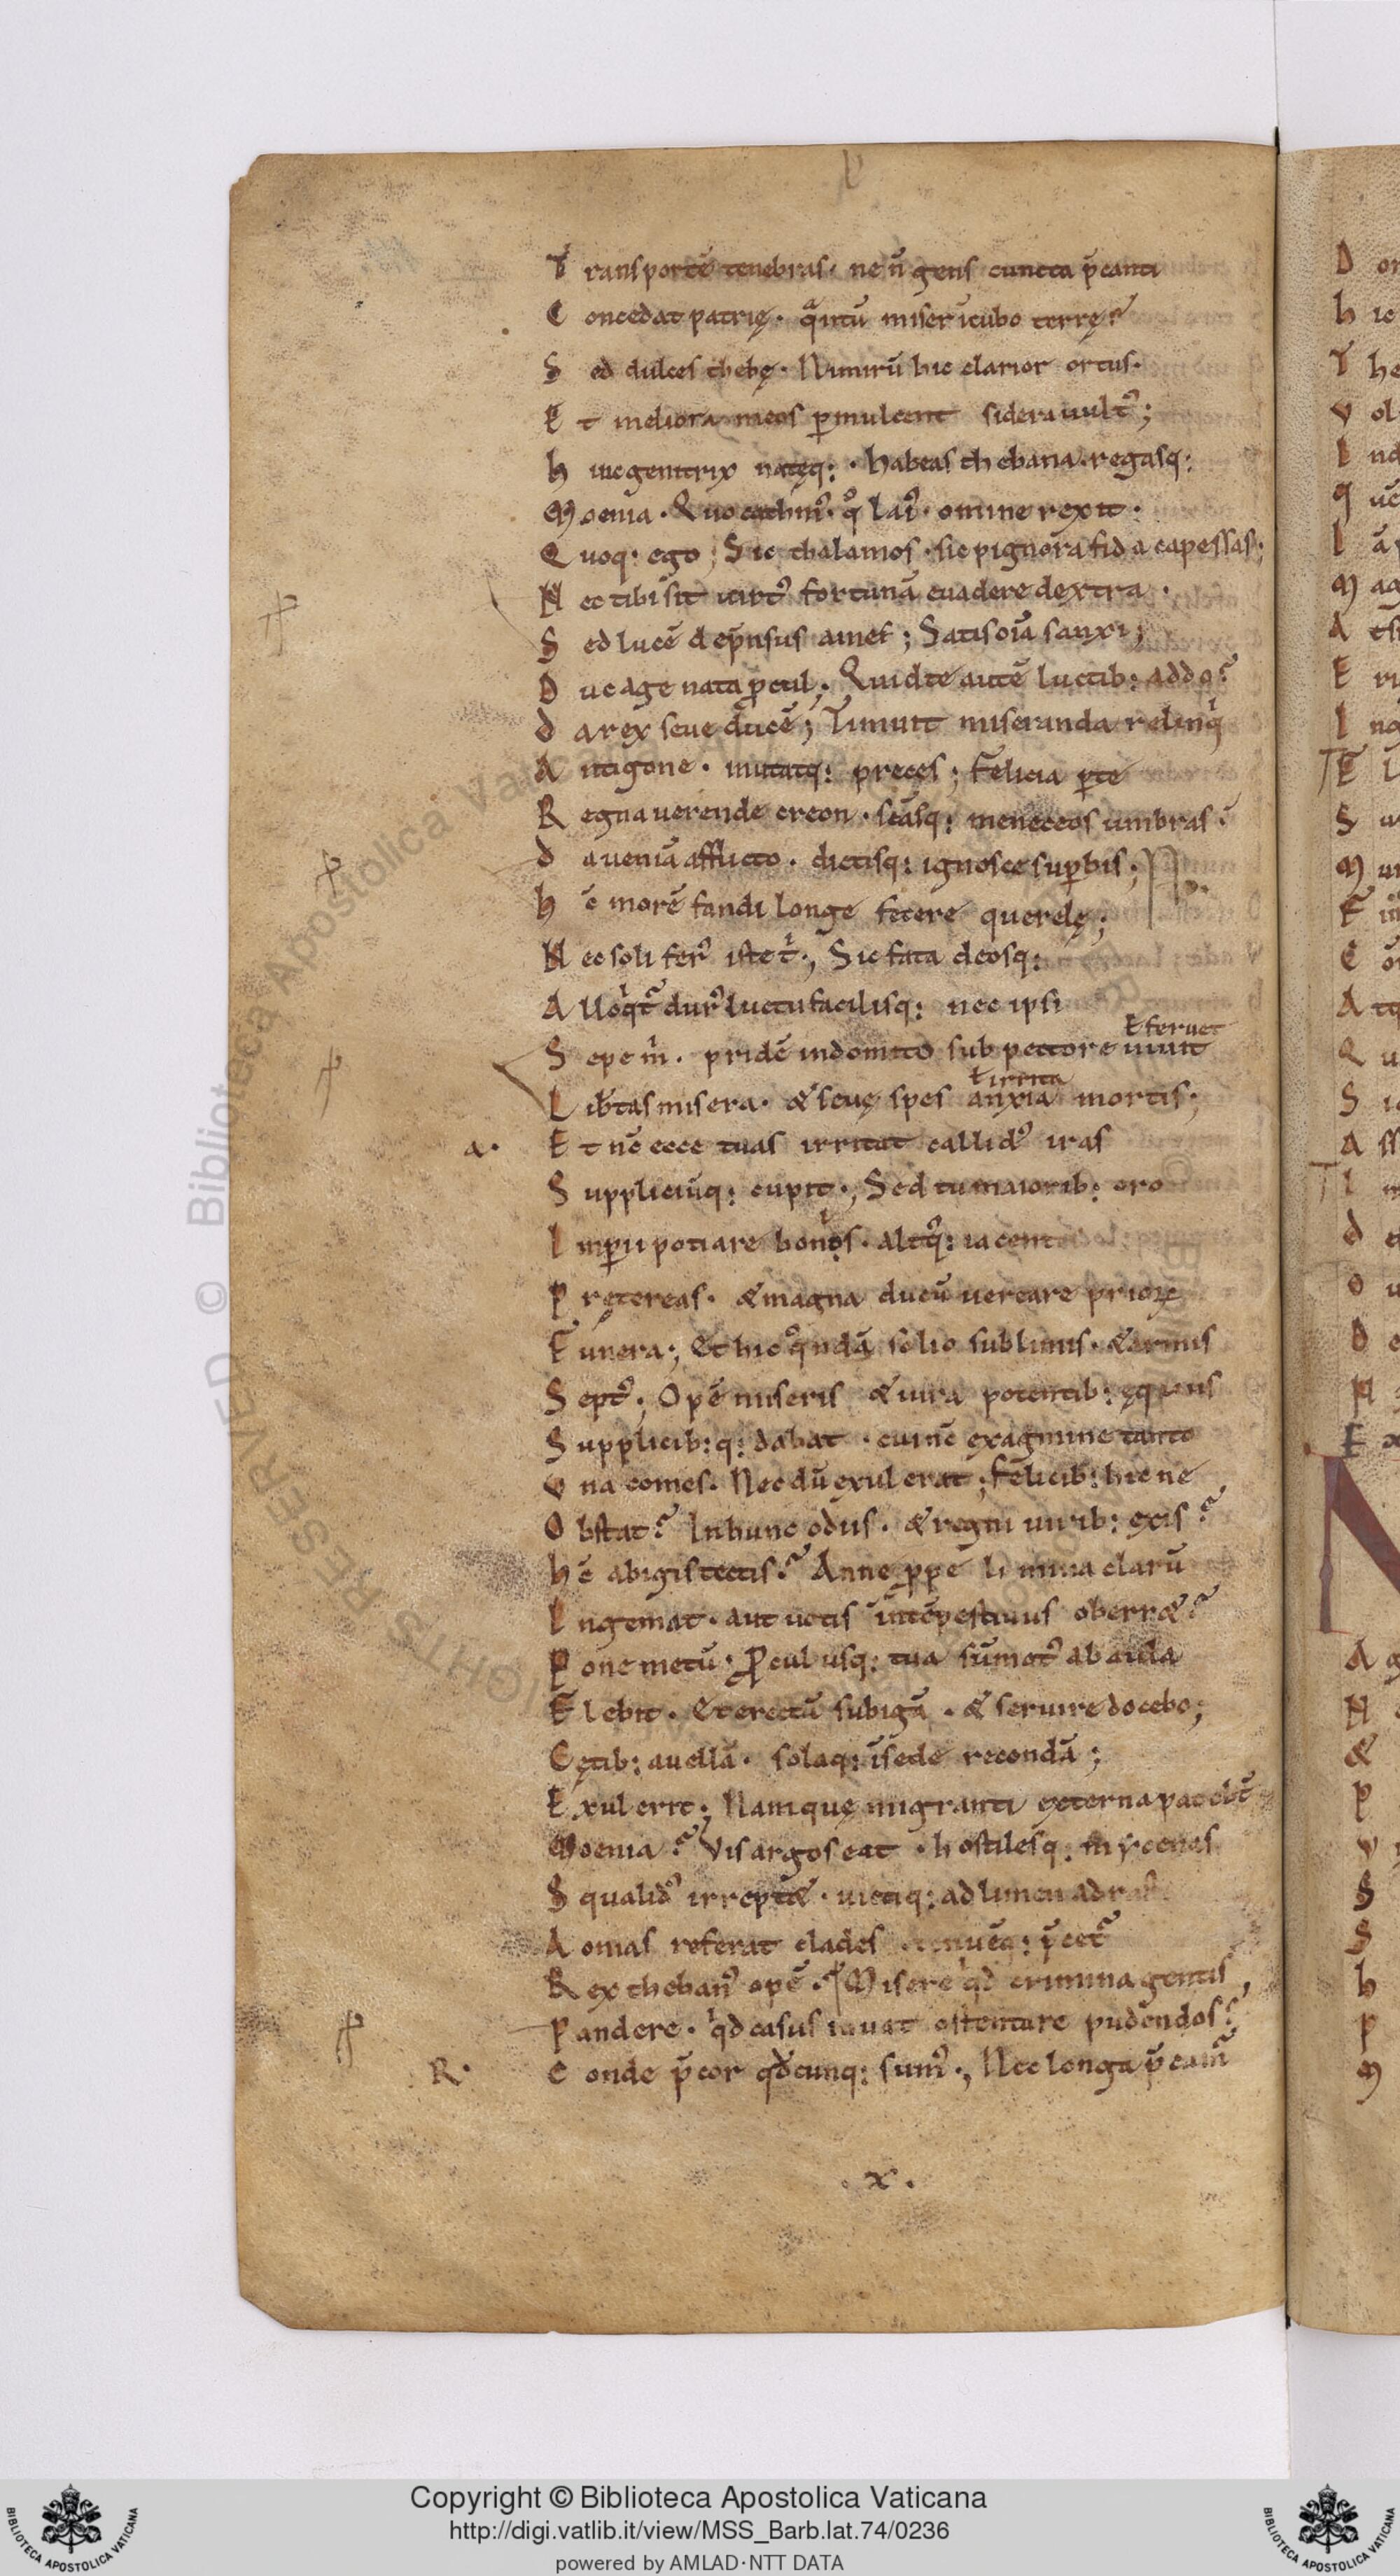 T ransportē tenebras· ne n̄ gens cuncta p̄canti
C oncedat patrię· qᵃntū miser icubo terrę?
S ed dulces thebę· Nimirū hic clarior ortus·
E t meliora meos p̱mulcent sidera uultꝰ;
h incgenitrix natęq:· habeas thebana·regasq:
M oenia· Quo cathmꝰ· qͦ laiꝰ· omine rexit·
Q uoq: ego; Sic thalamos· sic pignora fida capessas;
N ec tibi sit uirtꝰ fortunā euadere dextra·
S ed lucē dep̄nsus amet; Satis oīa sanxi;
D uc age nata p̱cul; Quid te autē luctib: addo?
d a rex seue ducē; Timuit miseranda relinqⁱ
A ntigone· mutatq: preces; Felicia p̱ te
R egna uerende creon· scāsq: meneceos umbras·
d a ueniā afflicto· dictisq: ignosce sup̱bis;
h c̄ morē fandi longe fecere querelę;
N ec soli ferꝰ iste tⁱ·; Sic fata deosq:
A lloqⁱtᵃ durꝰ luctu facilisq: nec ipsi
S epe m̄· pridē indomito sub pectore uiuit
ł feruet
L ib̄tas misera· & seuę spes anxia mortis;
ł irrita
a· E t nc̄ ecce tuas irritat callidꝰ iras
S uppliciūq: cupit·; Sed tu maiorib: oro
I mp̱ii potiare bonis· altꝰq: iacent
P retereas· & magna ducū uereare priorꝫ
F unera·; Et hic qͦndā solio sublimis· & armis
S eptꝰ·; Opē miseris & iura potentib: ęquus
S upplicib:q: dabat· cui nc̄ ex agmine tanto
V na comes· Nec dū exul erat; Felicib: hic ne
O bstat? In hunc odiis· & regni uirib: exis?
h c̄ abigis tectis? Anne p̱pe limina clarū
I ngemat· aut uotis intēpestiuus oberr&?
P one metū· Procul usq: tua sūmotꝰ ab aula
F lebit· Et erectū subigā· & seruire docebo;
C ętib: auellā· solaq: ī sede recondā;
E xul erit; Namque migranti externa patebt̄
M oenia? Vis argos eat· hostilesq: mycenas
S qualidꝰ irrept&· uictiq: ad limen adrasti
A omas referat clades p̄cetᵃ
R ex thebanꝰ opē· Misere qⁱd crimina gentis
P andere· qⁱd casus iuuat ostentare pudendos?
R· C onde p̄cor qd̄cunq: sumꝰ·; Nec longa p̄camᵃ
·x·
Copyright © Biblioteca Apostolica Vaticana
http://digi.vatlib.it/view/MSS_Barb.lat.74/0236
powered by AMLAD·NTT DATA